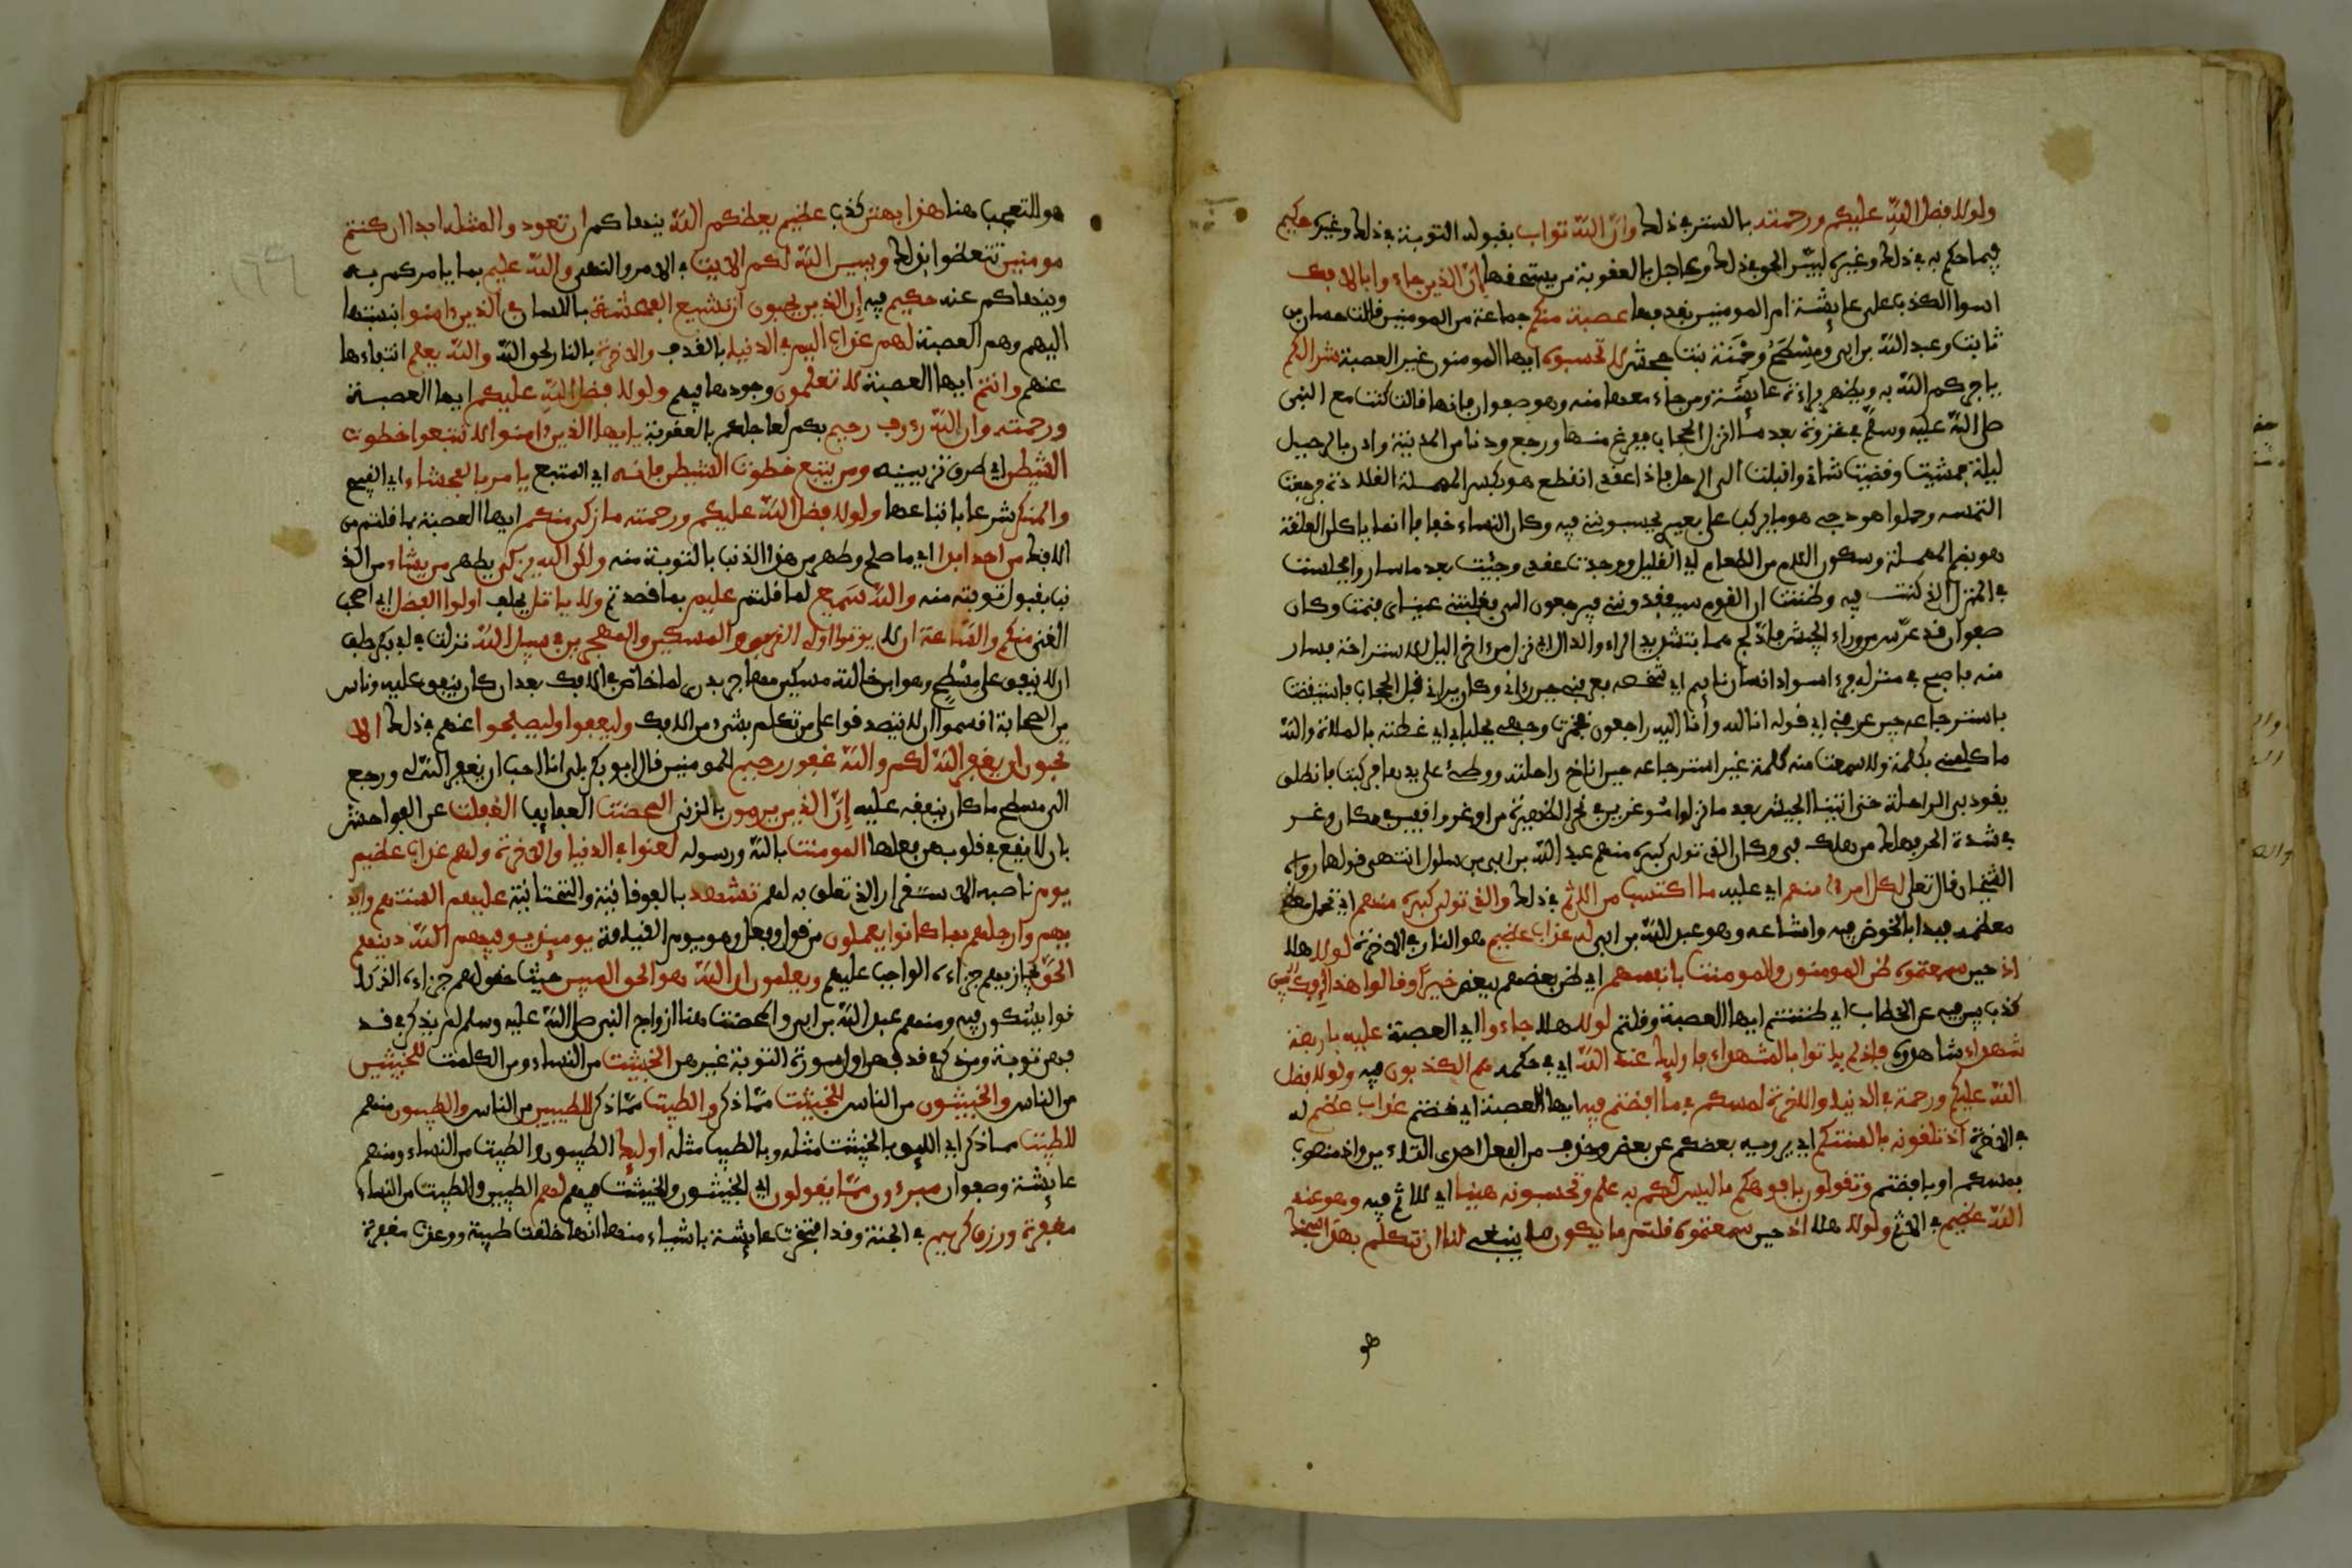 ولولا فضل الله عليكم ورحمته بالستر في ذلك وأن الله تواب بقبوله التوبة في ذلك وغيره حكيم
فيما حكم به في ذلك وغيره ليبين الحق في ذلك وعاجل بالعقوبة من يستحقها إن الذين جاءو بالافك
اسوا الكذب على عايشة ام المومنين بقذفها عصبة منكم جماعة من المومنين قالت حسان بن
ثابت وعبد الله بن ابي ومسطح وحمنة بنت جحش لا تحسبوه ايها المومنون غير العصبة شرا لكم
ياجركم الله به ويظهر براءة عايشة ومن جاء معها منه وهو صفوان فانها قالت كنت مع النبي
صلى الله عليه وسلم في غزوة بعد ما انزل الحجاب ففرغ منها ورجع ودنا من المدينة واذن بالرحيل
ليلة فمشيت وقضيت شاني واقبلت الى الرحل فاذا عقدي انقطع هو بكسر المهملة القلادة فرجعت
التمسه وحملوا هودجي هو ما يركب على بعير يحسبونني فيه وكان النساء خفافا انما ياكلن العلقة
هو بضم المهملة وسكون اللام من الطعام اي القليل ووجدت عقدي وجئت بعد ما ساروا فجلست
في المنزل الذي كنت فيه وظننت ان القوم سيفقدونني فيرجعون الي فغلبتني عيناي فنمت وكان
صفوان قد عرس من وراء الجيش فادلج هما بتشديد الراء والدال اي نزل من اخر الليل للاستراحة فسار
منه فاصبح في منزله فرءا سواد انسان نايم اي شخصه فعرفني حين رءاني وكان يراني قبل الحجاب فاستيقظت
باسترجاعه حين عرفني اي قوله انا لله وأنا اليه راجعون فخمرت وجهي بجلبابي اي غطته بالملاءة والله
ما كلمني بكلمة ولا سمعت منه كلمة غير استرجاعه حين اناخ راحلته ووطئ على يدها فركبتها فانطلق
يقود بي الراحلة حتى اتينا الجيش بعد ما نزلوا موغرين في نحر الظهيرة من اوغر واقفين في مكان وغر
في شدة الحر فهلك من هلك في وكان الذي تولى كبره منهم عبد الله بن ابي بن سلول انتهى قولها رواه
الشيخان قال تعلى لكل امرئ منهم اي عليه ما اكتسب من الاثم في ذلك والذي تولى كبره منهم اي تحمل
معظمه فبدا بالخوض فيه واشاعه وهو عبد الله بن ابي له عذاب عظيم هو النار في الاخرة لولا هلا
اذ حين سمعتموه ظن المومنون والمومنت بانفسهم اي ظن بعضهم ببعض خيرا وقالوا هذا افك مبين
كذب بين فيه عن الخطاب اي ظننتم ايها العصبة وقلتم لولا هلا جاءوا اي العصبة عليه باربعة
شهداء شاهدوه فاذ لم ياتوا بالشهداء فاوليك عند الله اي في حكمه هم الكذبون فيه ولولا فضل
الله عليكم ورحمته في الدنيا والاخرة لمسكم في ما أفضتم فيه ايها العصبة اي خضتم عذاب عظيم له
في الاخرة اذ تلقونه بالسنتكم اي يرويه بعضكم عن بعض وحذف من الفعل احدى التاءين واذ منصوب
بمسكم او بافضتم وتقولون بافوهكم ما ليس لكم به علم وتحسبونه هينا اي لا اثم فيه وهو عند
الله عظيم في الاثم ولولا هلا اذ حين سمعتموه قلتم ما يكون ما ينبغي لنا ان نتكلم بهذا سبحنك
هو للتعجب هنا هذا بهتن كذب عظيم يعظكم الله ينهاكم ان تعودوا لمثله ابدا ان كنتم
مومنين تتعظوا بذلك ويبين الله لكم الايت في الامر والنهي والله عليم بما يامركم به
وينهاكم عنه حكيم فيه إن الذين يحبون أن تشيع الفحشة باللسان في الذين ءامنوا بنسبتها
اليهم وهم العصبة لهم عذاب اليم في الدنيا بالقذف والاخرة بالنار لحق الله والله يعلم انتفاءها
عنهم وانتم ايها العصبة لا تعلمون وجودها فيهم ولولا فضل الله عليكم ايها العصبة
ورحمته وان الله رءوف رحيم بكم لعاجلكم بالعقوبة يايها الذين ءامنوا لا تتبعوا خطوت
الشيطن اي طرق تزيينه ومن يتبع خطوت الشيطن فانه اي المتبع يامر بالفحشاء اي القبيح
والمنكر شرعا باتباعها ولولا فضل الله عليكم ورحمته ما زكى منكم ايها العصبة بما قلتم من
الافك من احد ابدا اي ما صلح وطهر من هذا الذنب بالتوبة منه ولكن الله يزكي يطهر من يشاء من الذ
نب بقبول توبته منه والله سميع لما قلتم عليم بما قصدتم ولا ياتل يحلف اولوا الفضل اي اصحب
الغنى منكم والسعة ان لا يوتوا اولي القربى والمسكين والمهجرين في سبيل الله نزلت في ابي بكر حلف
ان لا ينفق على مسطح وهو ابن خالته مسكين مهاجر بدري لما خاض في الافك بعد ان كان ينفق عليه وناس
من الصحابة اقسموا ان لا يتصدقوا على من تكلم بشيء من الافك وليعفوا وليصفحوا عنهم في ذلك الا
تحبون ان يغفر الله لكم والله غفور رحيم للمومنين قال ابو بكر بلى انا احب ان يغفر الله لي ورجع
الى مسطح ما كان ينفقه عليه إن الذين يرمون بالزنى المحصنت العفايف الغفلت عن الفواحش
بان لا يقع في قلوبهن فعلها المومنت بالله ورسوله لعنوا في الدنيا والاخرة ولهم عذاب عظيم
يوم ناصبه الاستقرار الذي تعلق به لهم تشهد بالفوقانية والتحتانية عليهم السنتهم وايد
يهم وارجلهم بما كانوا يعملون من قول وفعل وهو يوم القيامة يوميذ يوفيهم الله دينهم
الحق يجازيهم جزاءه الواجب عليهم ويعلمون ان الله هو الحق المبين حيث حقق لهم جزاءه الذي كا
نوا يشكون فيه ومنهم عبد الله بن ابي والمحصنت هنا ازواج النبي صلى الله عليه وسلم لم يذكر في قذ
فهن توبة ومن ذكر في قذفهن اول سورة التوبة غيرهن الخبيثت من النساء ومن الكلمت للخبيثين
من الناس والخبيثون من الناس للخبيثت مما ذكر والطيبت مما ذكر للطيبين من الناس والطيبون منهم
للطيبت مما ذكر اي الليق بالخبيثت مثله وبالطيب مثله اوليك الطيبون والطيبت من النساء ومنهم
عايشة وصفوان مبرءون مما يقولون اي الخبيثون والخبيثت فيهم لهم للطيبين والطيبت من النساء
مغفرة ورزق كريم في الجنة وقد افتخرت عايشة باشياء منها انها خلقت طيبة ووعدت مغفرة